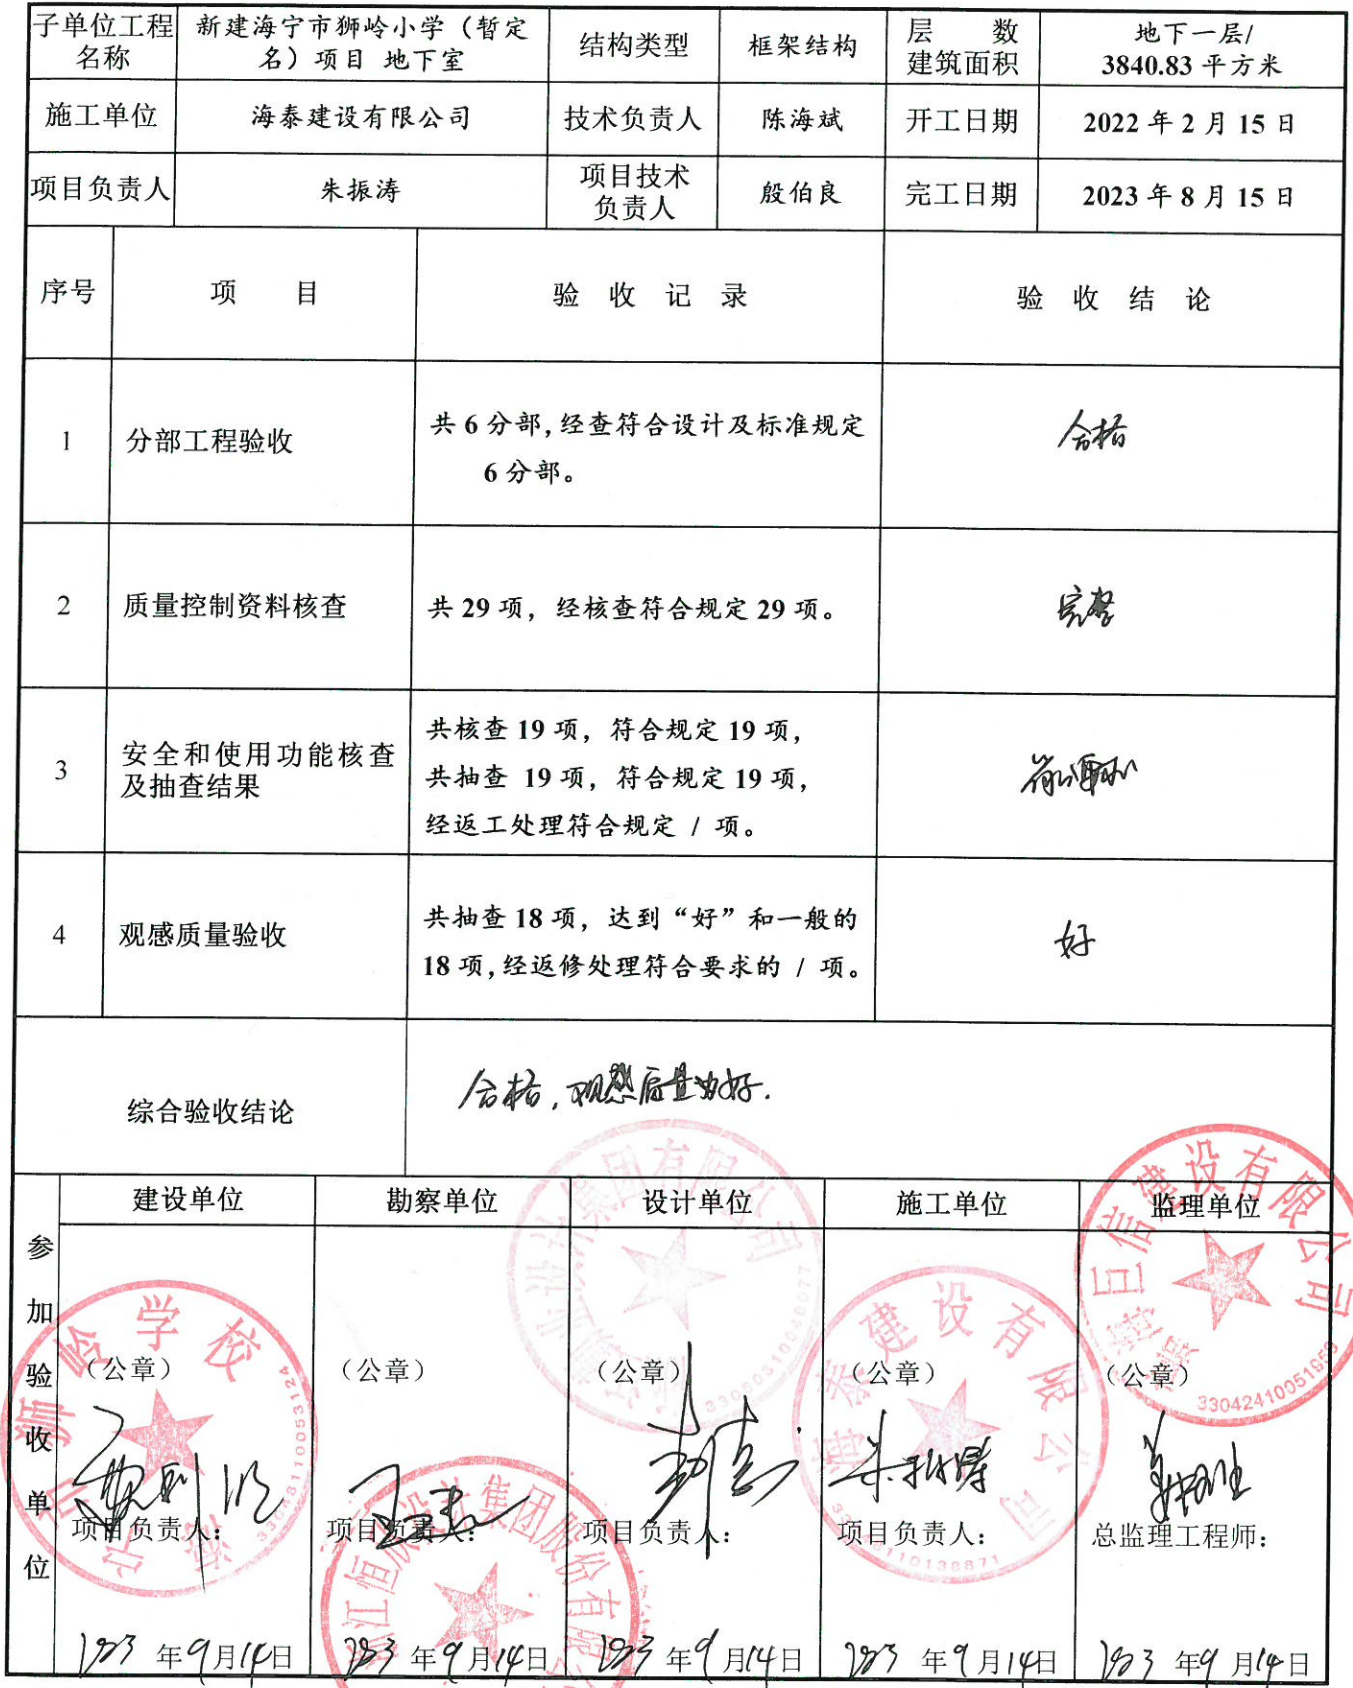 子单位工程名称 新建海宁市狮岭小学（暂定名）项目 地下室 结构类型 框架结构 层 数 建筑面积 地下一层/ 3840.83 平方米
施工单位 海泰建设有限公司 技术负责人 陈海斌 开工日期 2022 年 2 月 15 日
项目负责人 朱振涛 项目技术负责人 殷伯良 完工日期 2023 年 8 月 15 日
序号 项 目 验 收 记 录 验 收 结 论
1 分部工程验收 共 6 分部，经查符合设计及标准规定 合格
6 分部。
2 质量控制资料核查 共 29 项，经核查符合规定 29 项。 完整
3 安全和使用功能核查及抽查结果 共核查 19 项，符合规定 19 项，
共抽查 19 项，符合规定 19 项，
经返工处理符合规定 / 项。
4 观感质量验收 共抽查 18 项，达到“好”和一般的 好
18 项，经返修处理符合要求的 / 项。
综合验收结论 合格，观感质量为好.
参加验收单位
建设单位 勘察单位 设计单位 施工单位 监理单位
（公章） （公章） （公章） （公章） （公章）
项目负责人： 项目负责人： 项目负责人： 项目负责人： 总监理工程师：
2023 年 9 月 14 日 2023 年 9 月 14 日 2023 年 9 月 14 日 2023 年 9 月 14 日 2023 年 9 月 14 日
海泰建设有限公司